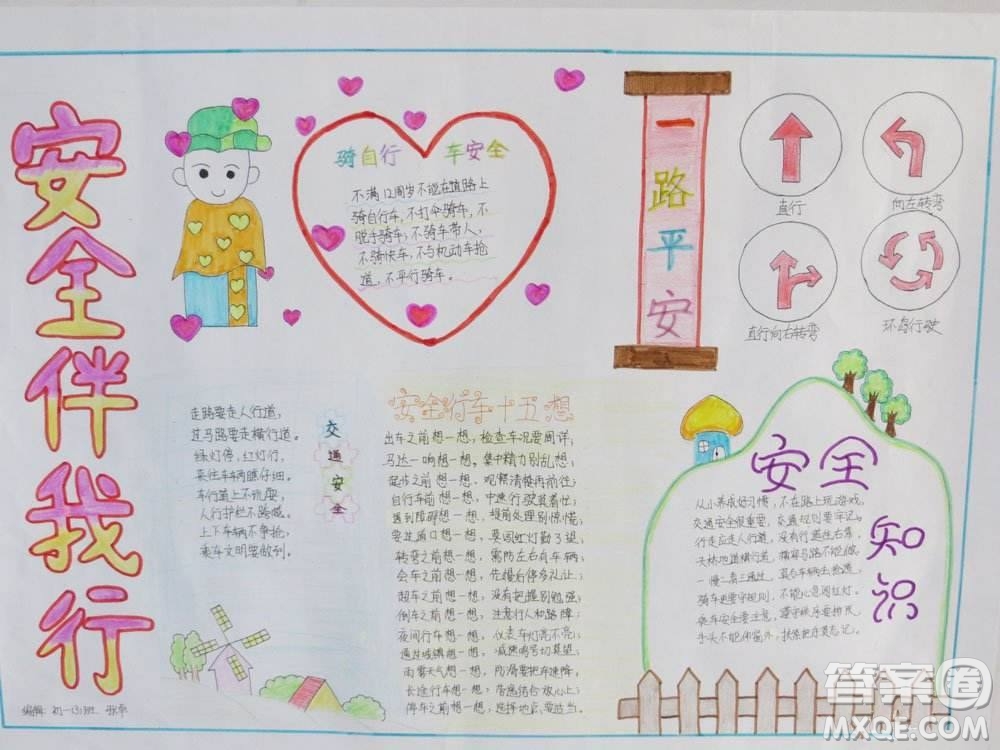 安全伴我行
骑自行车安全
不满12周岁不能在道路上
骑自行车,不打伞骑车,不
脱手骑车,不骑车带人,
不骑快车,不与机动车抢
道,不平行骑车。
一路平安
直行
向左转弯
直行向右转弯
环岛行驶
走路要走人行道,
过马路要走横行道。
绿灯停,红灯行,
来往车车俩瞧仔细。
车行道上不玩耍,
人行护栏不跨越。
上下车辆不争抢,
乘车文明要做到。
交通安全
安全行车十五想
出车之前想一想,检查车况要周详,
马达一响想一想。集中精力别乱想,
起步之前想一想,
自行车前想一想,
遇到障碍想一想,提前处理别惊慌,
转弯之前想一想,需防左右有车辆,
会车之前想一想,先慢后停多礼让,
超车之前想一想,没有把握别勉强,
倒车之前想一想,注意行人和路障,
夜间行车想一想,仪表车灯亮不亮,
通过城镇想一想,减速鸣号切莫望,
雨雾天气想一想,防滑要把车速降,
长途行车想一想,劳逸结合放心上,
停车之前想一想,选择地点要妥当。
安全知识
从小养成好习惯,不在路上玩游戏,
交通安全很重要,交通规则要牢记,
行走应走人行道,没有行道往右靠,
天桥地道横行道,横穿马路不能做,
一慢二看三通过,莫与车辆去抢道,
骑车更要守规则,不能心急闯红灯。
乘车安全要注意,遵守秩序要排队,
手头不能伸窗外,扶紧把手莫忘记。
编辑:初一(3)班
答案圈
MXQE.COM